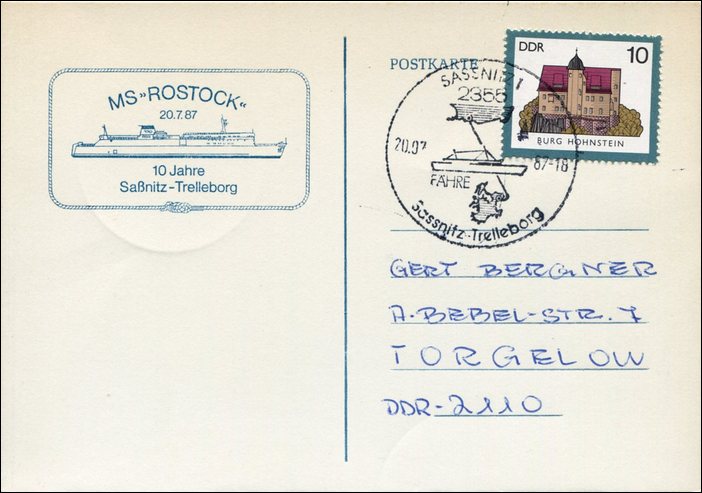 MS»ROSTOCK«
20.7.87
10 Jahre
Saßnitz-Trelleborg
POSTKARTE
DDR 10
BURG HOHNSTEIN
SASSNITZ 1
2355
20.07 87-18
FÄHRE
Sassnitz-Trelleborg
GERT BERGNER
A.BEBEL-STR. 7
TORGELOW
DDR-2110